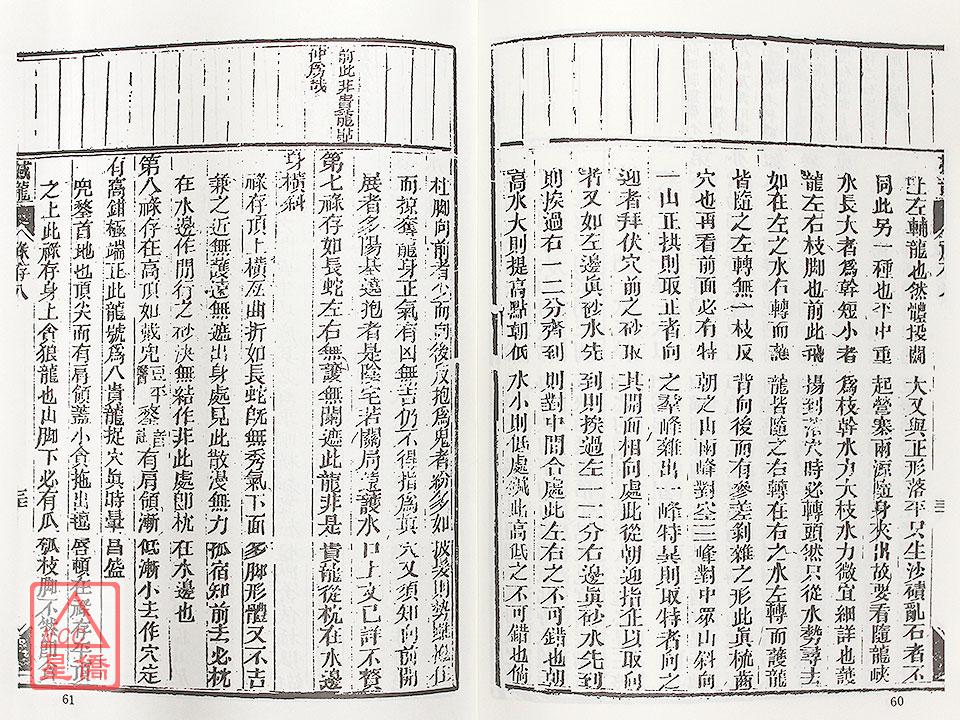 上左輔龍也然體段闊大又與正形落平只生沙磧亂石者不
同此另一種也平中重起營寨兩源隨身夾出故要看隨龍峽
水長大者為幹短小者為枝幹水力大枝水力微宜細詳也然
龍左右枝脚也前此飛揚到落穴時必轉頭然只從水勢尋去
如在左之水右轉而龍皆隨之右轉在右之水左轉而護龍
皆隨之左轉無一枝反背向後而有參差剝雜之形此真梳齒
穴也再看前面必有特朝之山兩峰對空三峰對中眾山斜向
一山正拱則取正者向之羣峰雜出一峰特異則取特者向之
迎者拜伏穴前之砂取其開面相向處此從朝迎指正以取向
者又如左邊真砂水先到則挨過左一二分右邊真砂水先到
則挨過右一二分齊到則對中間合處此左右之不可錯也朝
高水大則提高點朝低水小則低處緘此高低之不可錯也倘
60
前此非貴龍
仲為哉
枝脚向前者少而向後反抱為鬼者紛多如
而掠奪龍身正氣有凶無吉仍不得指為真穴又須知向前開
展者多陽基遶抱者是陰宅若關局
護水口上文已詳不贅
第七祿存如長蛇左右無護無闌遮此龍非是貴龍從枕在水邊
身橫斜
祿存頂上橫亙曲折如長蛇旣無秀氣下面多脚形體又不吉
兼之近無護遠無遮出身處見此散漫無力孤宿知前去必枕
在水邊作閒行之砂決無結作非此處卽枕在水邊也
第八祿存在高頂如戴兜鍪有肩領漸低漸小去作穴定
有窩鋪極端正此龍號為八貴龍捉穴真時暈昌盛
兜鍪首地也頂尖而有肩領蓋小貪拖出氊唇頓在祿存平頂
之上此祿存身上貪狼龍也山脚下必有瓜瓠枝脚不
祿存八
61
星僑